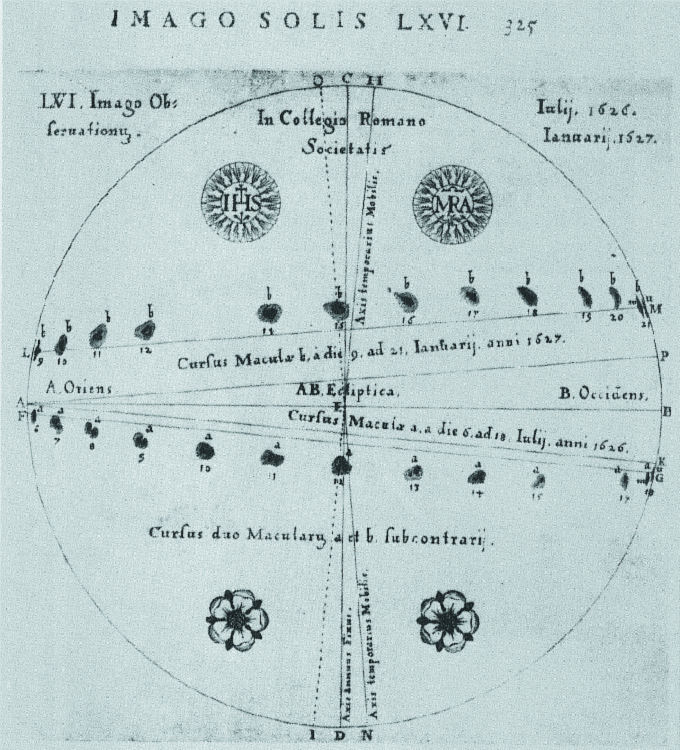 IMAGO SOLIS LXVI. 325
LXVI. Imago Ob:
seruationũ.
Iulij. 1626.
Ianuarij. 1627.
O C H
In Collegio Romano
Societatis
IHS
MRA
Axis temporarius Mobilis.
b b b b b b b b b b b
L 9 10 11 12 14 15 16 17 18 19 20 21 M
Cursus Maculæ b, à die 9. ad 21. Ianuarij. anni 1627.
P
A. Oriens
AB. Ecliptica.
B. Occidens.
A E B
F
Cursus Maculæ a. a die 6. ad 18. Iulij. anni 1626.
K
G
a a a a a a a a a a a
6 7 8 9 10 11 12 13 14 15 17 18
Cursus duo Macularũ a et b. subcontrarij.
Axis Annuus Fixus.
Axis temporarius Mobilis.
I D N